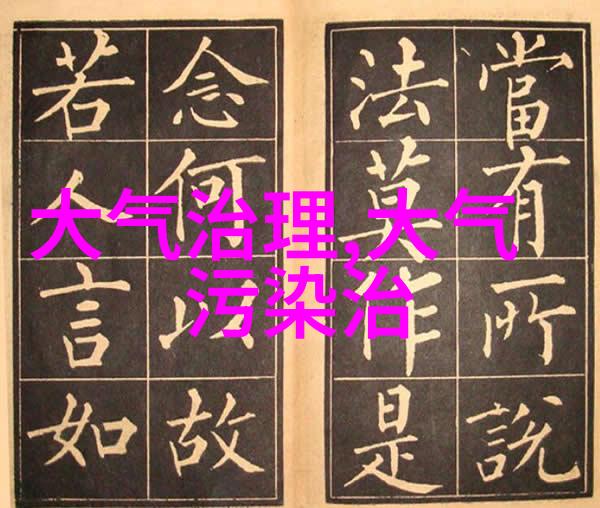 當有所説
法莫作是
念何以故
若人言如
大气治理,大气
污染治